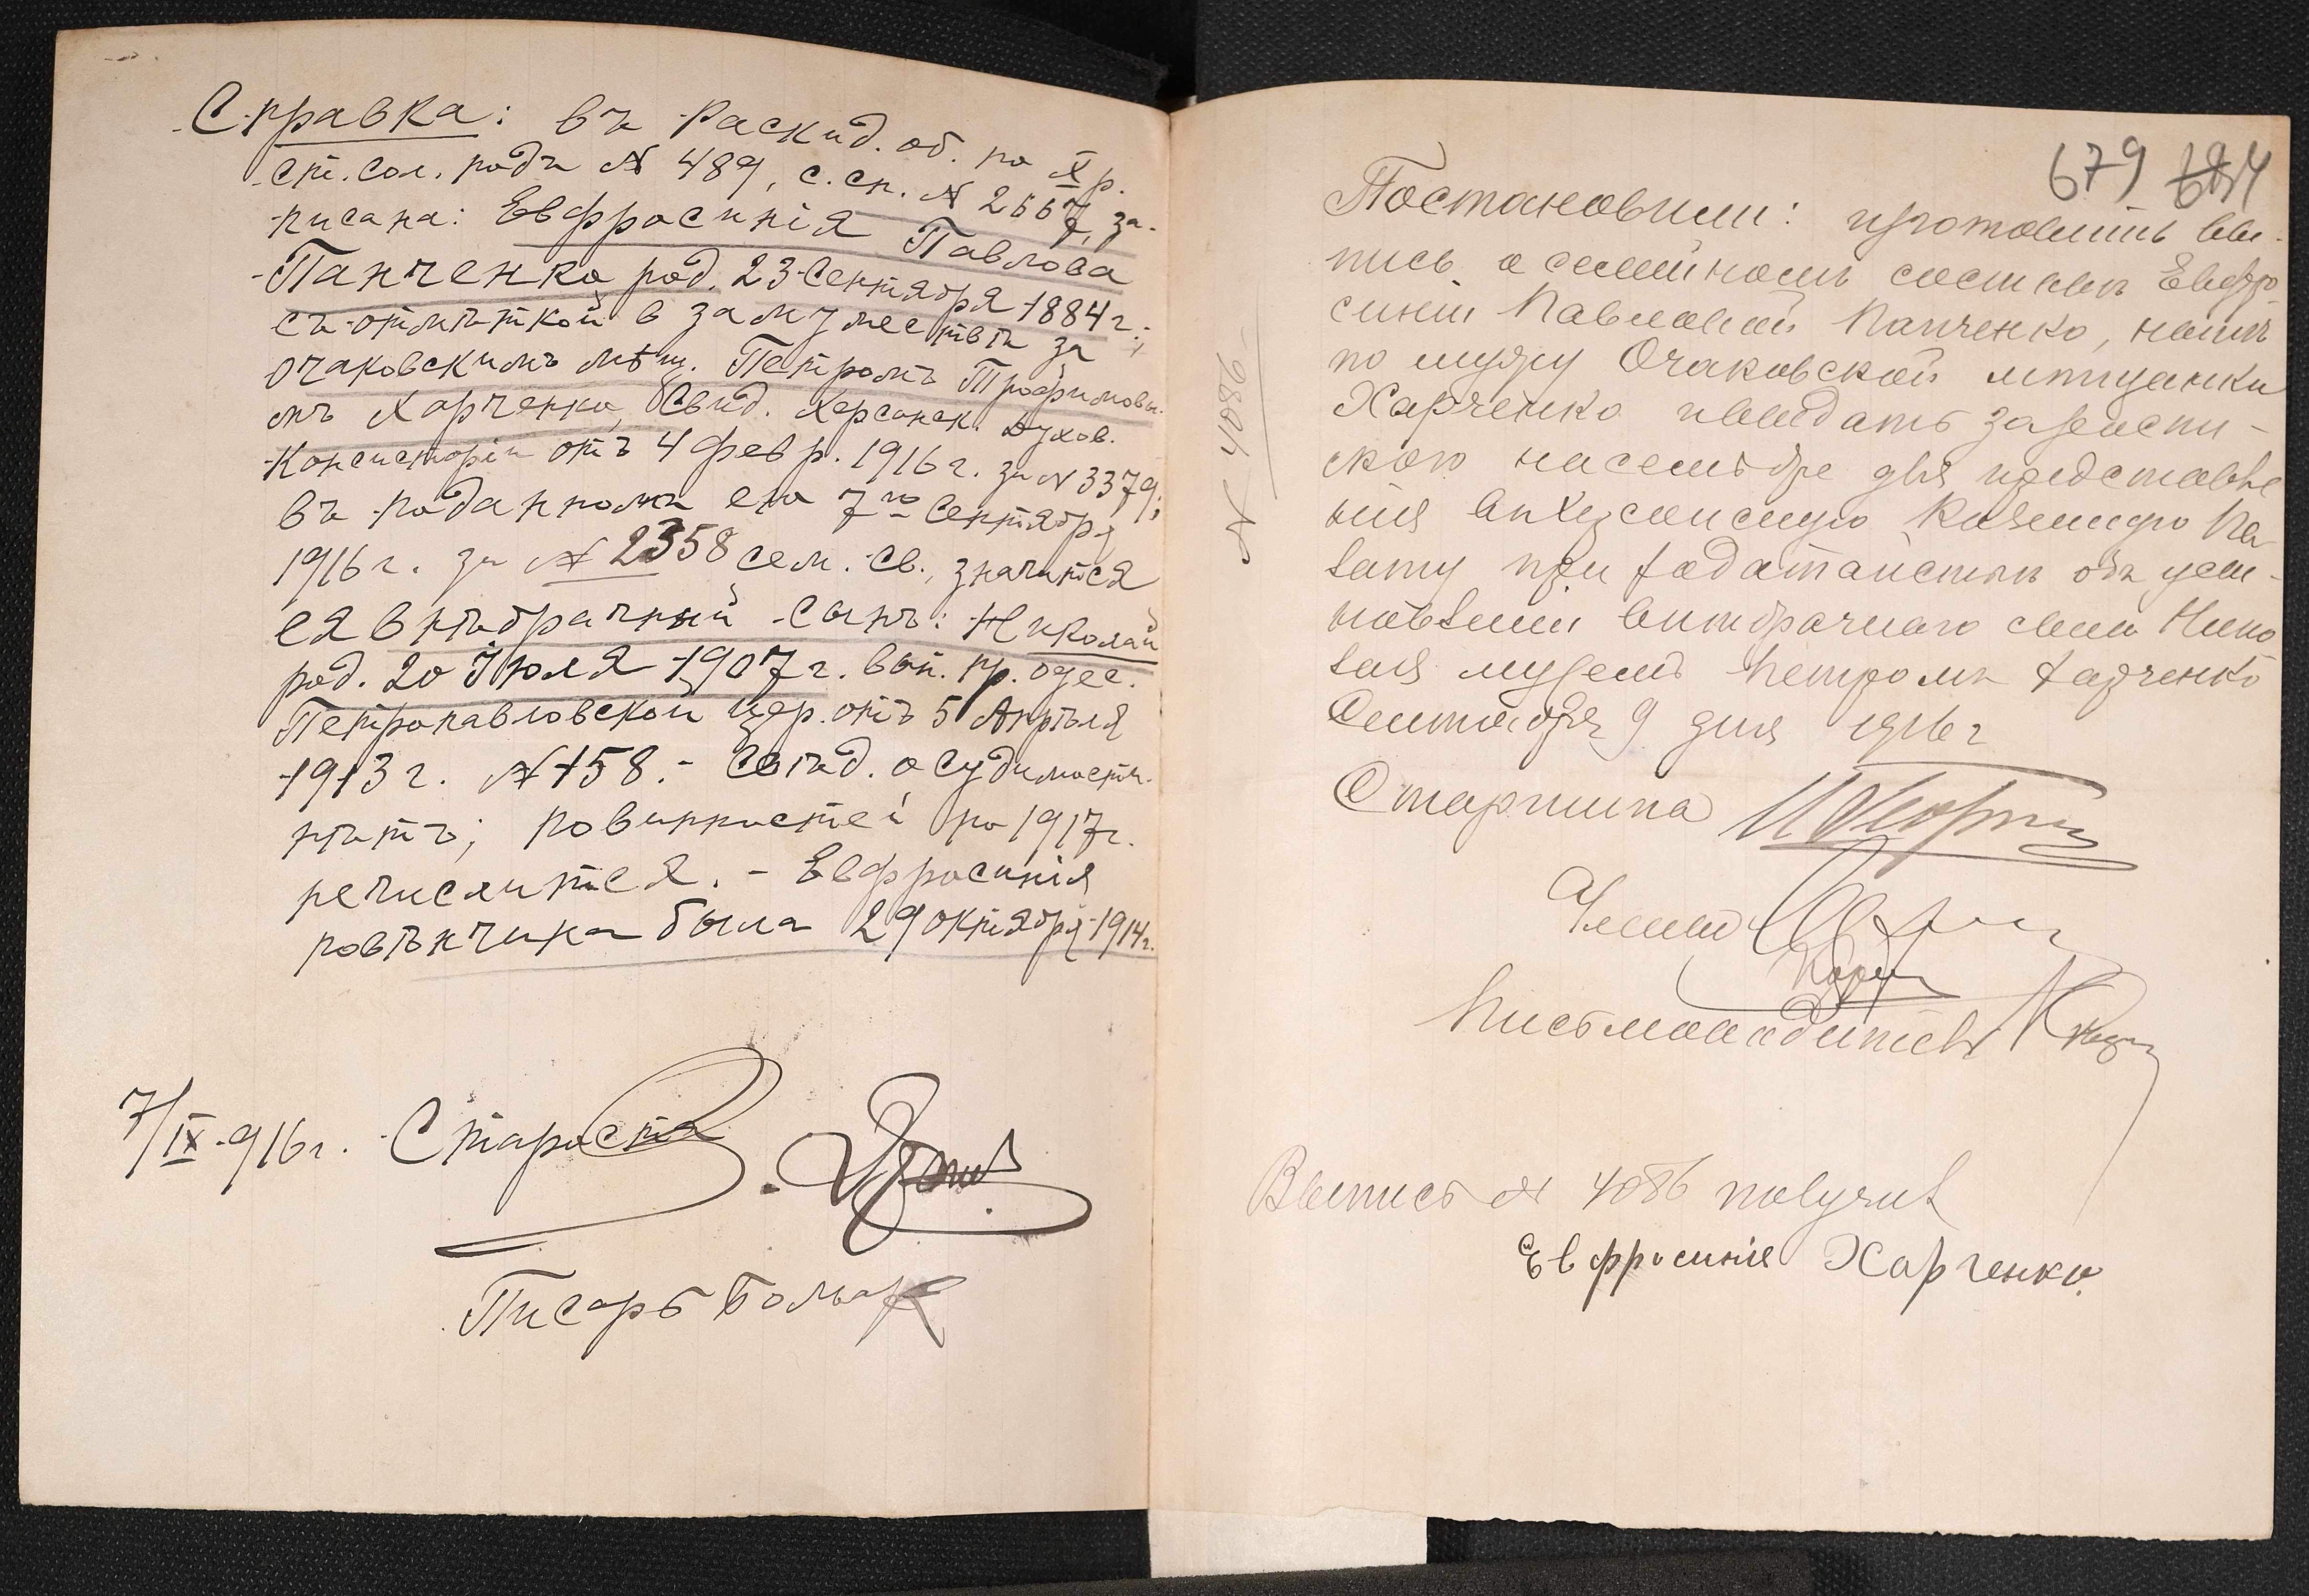 Справка: въ раскид. об. по X р.
ст. сол. подъ № 489, с. сп. № 2557, за-
писана: Евфросинія Павлова
Панченко род. 23 Сентября 1884 г.
съ отмѣткой о замужествѣ за
очаковскимъ мѣщ. Петромъ Трофимовы-
мъ Харченко, Свид. Херсонск. Духов.
Консисторіи отъ 4 февр. 1916 г. за № 3379;
въ поданномъ ею 7го Сентября
1916 г. за № 2358 сем. св., значится
ея внѣбрачный сынъ: Николай
род. 20 Іюля 1907 г. вып. пр. одес.
Петропавловской цер. отъ 5 Апрѣля
1913 г. № 158.- Свѣд. о судимости
нѣтъ; повинностей по 1917 г.
не числится. - Евфросинія
повѣнчана была 29 октября 1914 г.
7/IX 916 г. Староста
Писарь
679
Постановили: изготовить вы-
пись о семейномъ составѣ Евфро-
синіи Павловой Панченко, нынѣ
по мужу Очаковской мѣщанки
Харченко и выдать
для представле
нія въ Херсонскую Казенную Па
лату при ходатайствѣ объ усы-
новленіи внѣбрачнаго сына Нико
лая мужемъ Петромъ Харченко
Сентября 9 дня 1916 г
Старшина
Члены
Письмоводитель
№ 4086
Выпись № 4086 получил
Евфросинія Харченко.